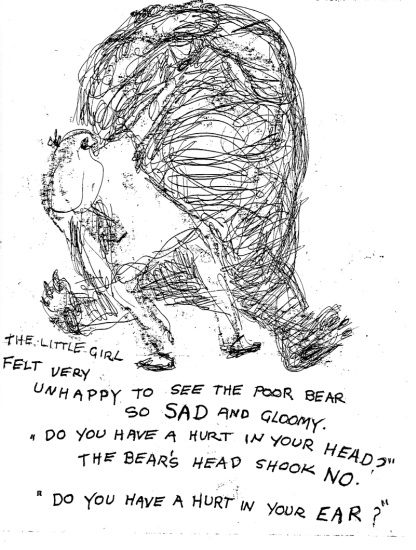 THE LITTLE GIRL
FELT VERY
UNHAPPY TO SEE THE POOR BEAR
SO SAD AND GLOOMY.
"DO YOU HAVE A HURT IN YOUR HEAD?"
THE BEAR'S HEAD SHOOK NO.
"DO YOU HAVE A HURT IN YOUR EAR?"